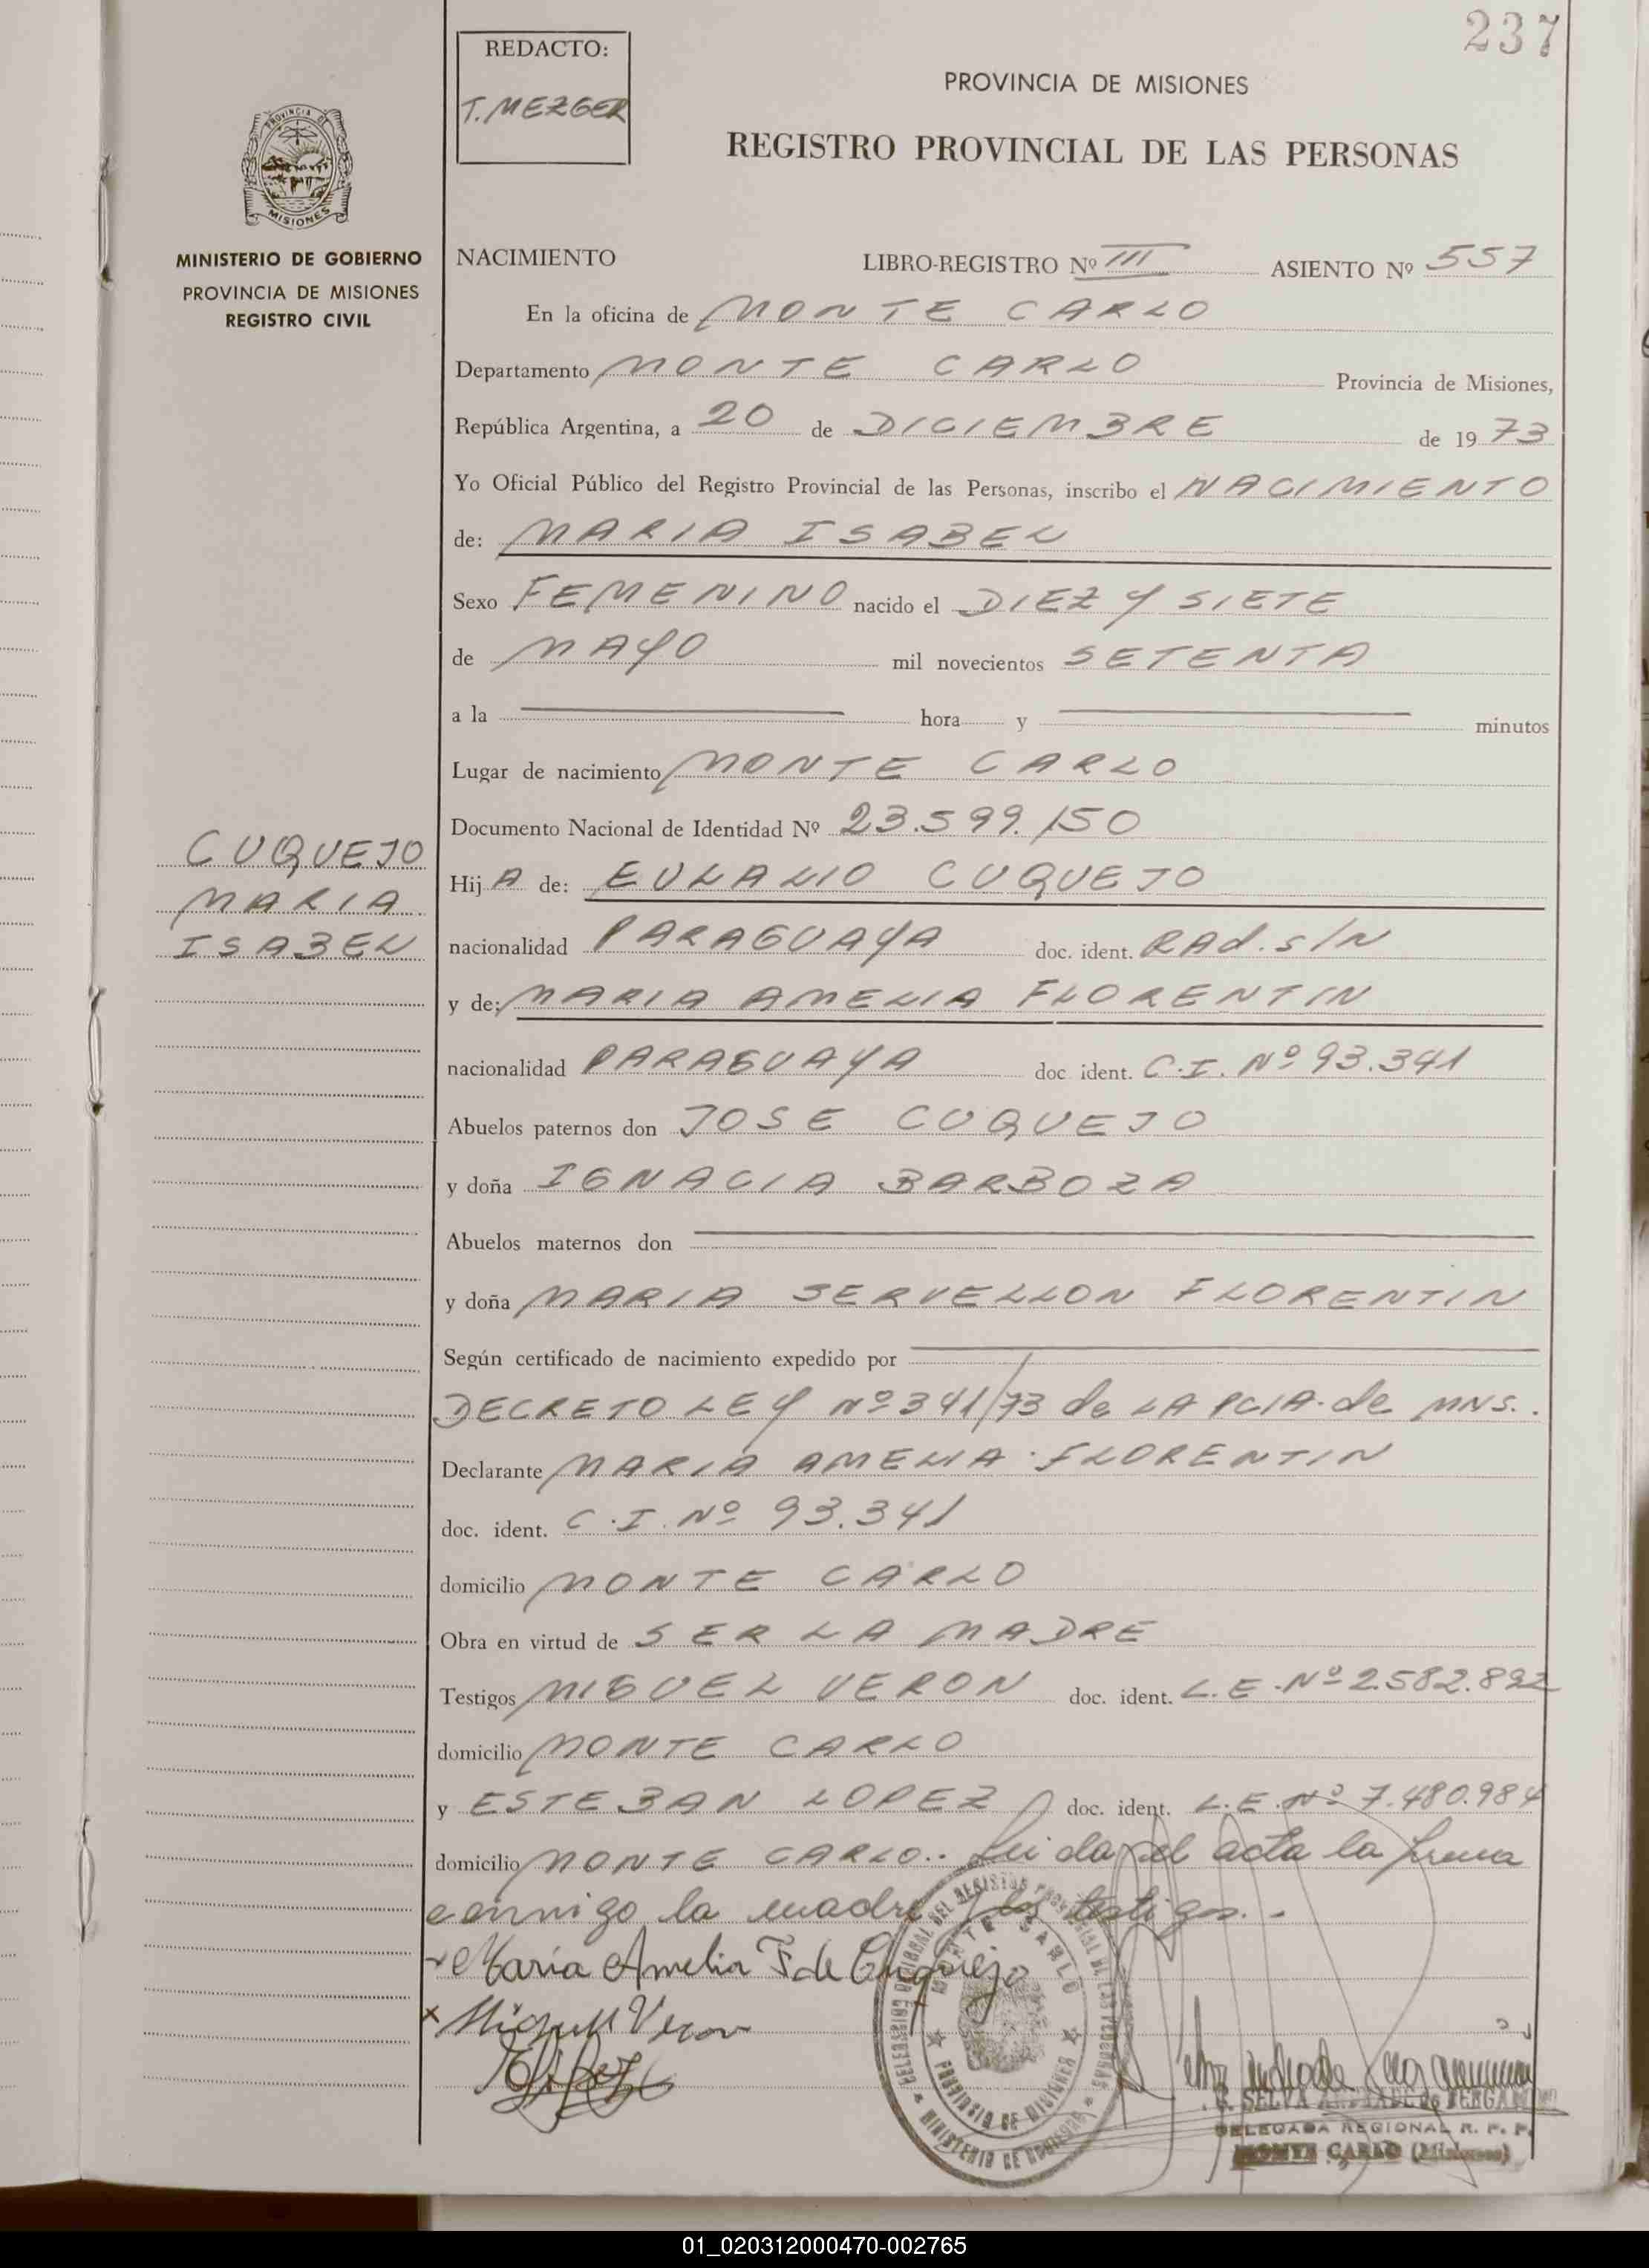 237
REDACTO:
T. MEZGER
PROVINCIA DE MISIONES
REGISTRO PROVINCIAL DE LAS PERSONAS
PROVINCIA DE
MISIONES
MINISTERIO DE GOBIERNO
PROVINCIA DE MISIONES
REGISTRO CIVIL
CUQUEJO
MARIA
ISABEL
NACIMIENTO LIBRO-REGISTRO Nº III ASIENTO Nº 557
En la oficina de MONTE CARLO
Departamento MONTE CARLO Provincia de Misiones,
República Argentina, a 20 de DICIEMBRE de 19 73
Yo Oficial Público del Registro Provincial de las Personas, inscribo el NACIMIENTO
de: MARIA ISABEL
Sexo FEMENINO nacido el DIEZ Y SIETE
de MAYO mil novecientos SETENTA
a la hora y minutos
Lugar de nacimiento MONTE CARLO
Documento Nacional de Identidad Nº 23.599.150
Hij A de: EULALIO CUQUEJO
nacionalidad PARAGUAYA doc. ident. RAd. S/N
y de: MARIA AMELIA FLORENTIN
nacionalidad PARAGUAYA doc ident. C.I. Nº 93.341
Abuelos paternos don JOSE CUQUEJO
y doña IGNACIA BARBOZA
Abuelos maternos don
y doña MARIA SERVELLON FLORENTIN
Según certificado de nacimiento expedido por
DECRETO LEY Nº 341/73 de LA PCIA. de MNS..
Declarante MARIA AMELIA FLORENTIN
doc. ident. C.I. Nº 93.341
domicilio MONTE CARLO
Obra en virtud de SER LA MADRE
Testigos MIGUEL VERON doc. ident. L.E. Nº 2.582.892
domicilio MONTE CARLO
y ESTEBAN LOPEZ doc. ident. L.E. Nº 7.480.984
domicilio MONTE CARLO.. Leida el acta la firma
conmigo la madre y los testigos.-
Maria Amelia F de Cuquejo
x Miguel Veron
MONTE CARLO
PROVINCIA DE MISIONES
MINISTERIO DE GOBIERNO
DELEGADA REGIONAL R. P. P.
MONTE CARLO (Misiones)
01_020312000470-002765